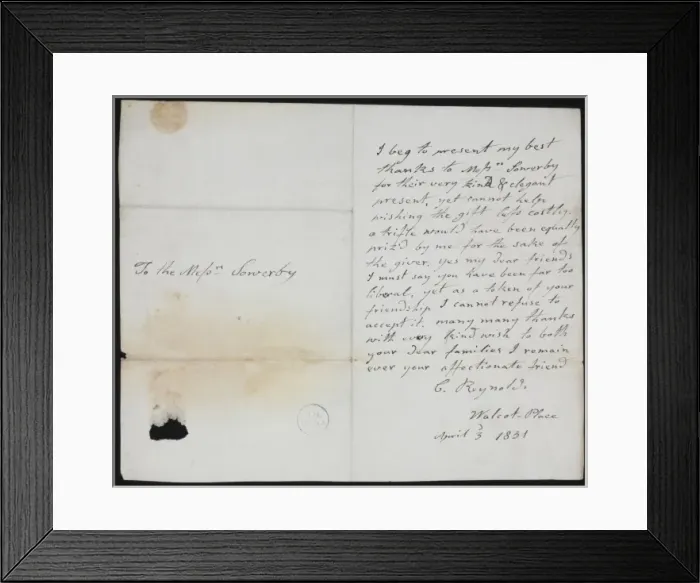 To the Messrs Sowerby
I beg to present my best
thanks to Messrs Sowerby
for their very kind & elegant
present, yet cannot help
wishing the gift less costly,
a trifle would have been equally
priz'd by me for the sake of
the giver. yes my dear friends
I must say you have been far too
liberal, yet as a token of your
friendship I cannot refuse to
accept it. many many thanks
with every kind wish to both
your dear families I remain
ever your affectionate friend
C. Reynolds
Walcot-Place
April 3 1831